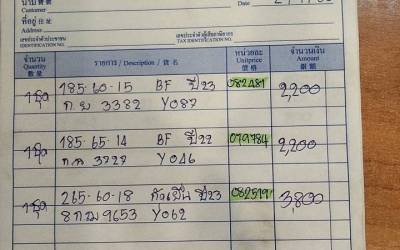 นามลูกค้า
Customer
ที่อยู่ 住址
Address
Date
เลขประจำตัวประชาชน
IDENTIFICATION NO.
เลขประจำตัวผู้เสียภาษีอากร
TAX IDENTIFICATION NO.
จำนวน Quantity 數量 รายการ / Description / 貨名 หน่วยละ Unitprice 價格 จำนวนเงิน Amount 銀額
1ชุด 185-60-15 BF ปี23 082481 2,200
3382 Y087
1ชุด 185-65-14 BF ปี22 079784 2,200
3727 Y046
1ชุด 265-60-18 ปี23 3,800
9653 Y062